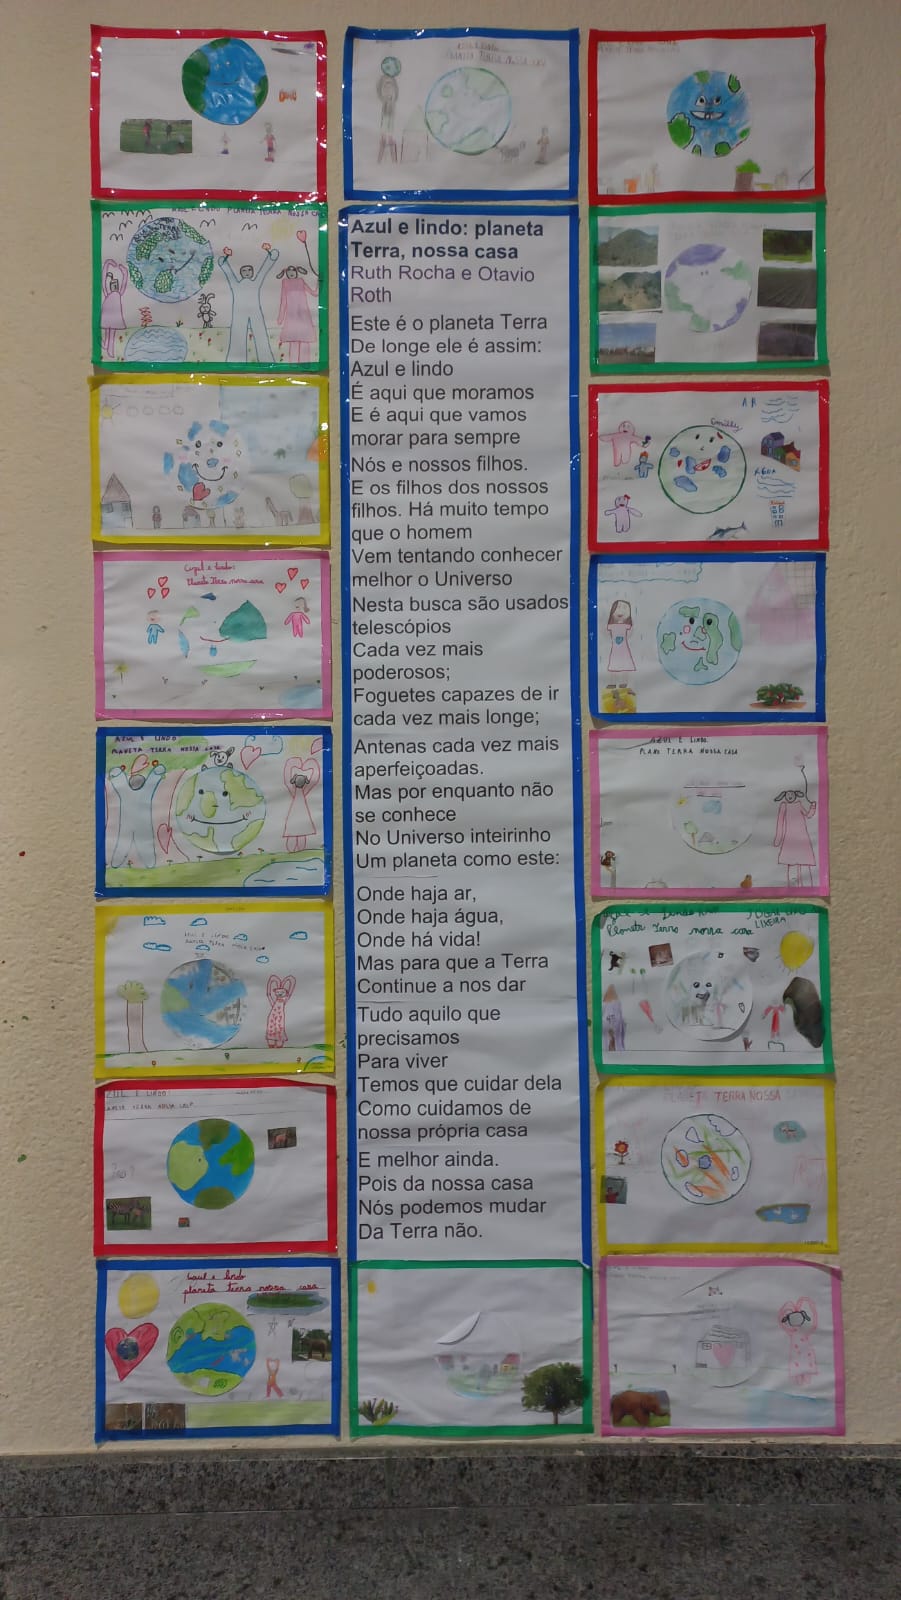 Azul e lindo: planeta
Terra, nossa casa
Ruth Rocha e Otavio
Roth
Este é o planeta Terra
De longe ele é assim:
Azul e lindo
É aqui que moramos
E é aqui que vamos
morar para sempre
Nós e nossos filhos.
E os filhos dos nossos
filhos. Há muito tempo
que o homem
Vem tentando conhecer
melhor o Universo
Nesta busca são usados
telescópios
Cada vez mais
poderosos;
Foguetes capazes de ir
cada vez mais longe;
Antenas cada vez mais
aperfeiçoadas.
Mas por enquanto não
se conhece
No Universo inteirinho
Um planeta como este:
Onde haja ar,
Onde haja água,
Onde há vida!
Mas para que a Terra
Continue a nos dar
Tudo aquilo que
precisamos
Para viver
Temos que cuidar dela
Como cuidamos de
nossa própria casa
E melhor ainda.
Pois da nossa casa
Nós podemos mudar
Da Terra não.
PLANETA TERRA NOSSA
Azul e lindo:
Planeta Terra nossa casa
AZUL E LINDO
PLANETA TERRA NOSSA CASA
AZUL E LINDO
Azul e lindo
planeta terra nossa casa
Emilly
AR
AGUA
AZUL E LINDO
TERRA NOSSA CASA
Planeta Terra nossa casa
LIXEIRA
TERRA NOSSA